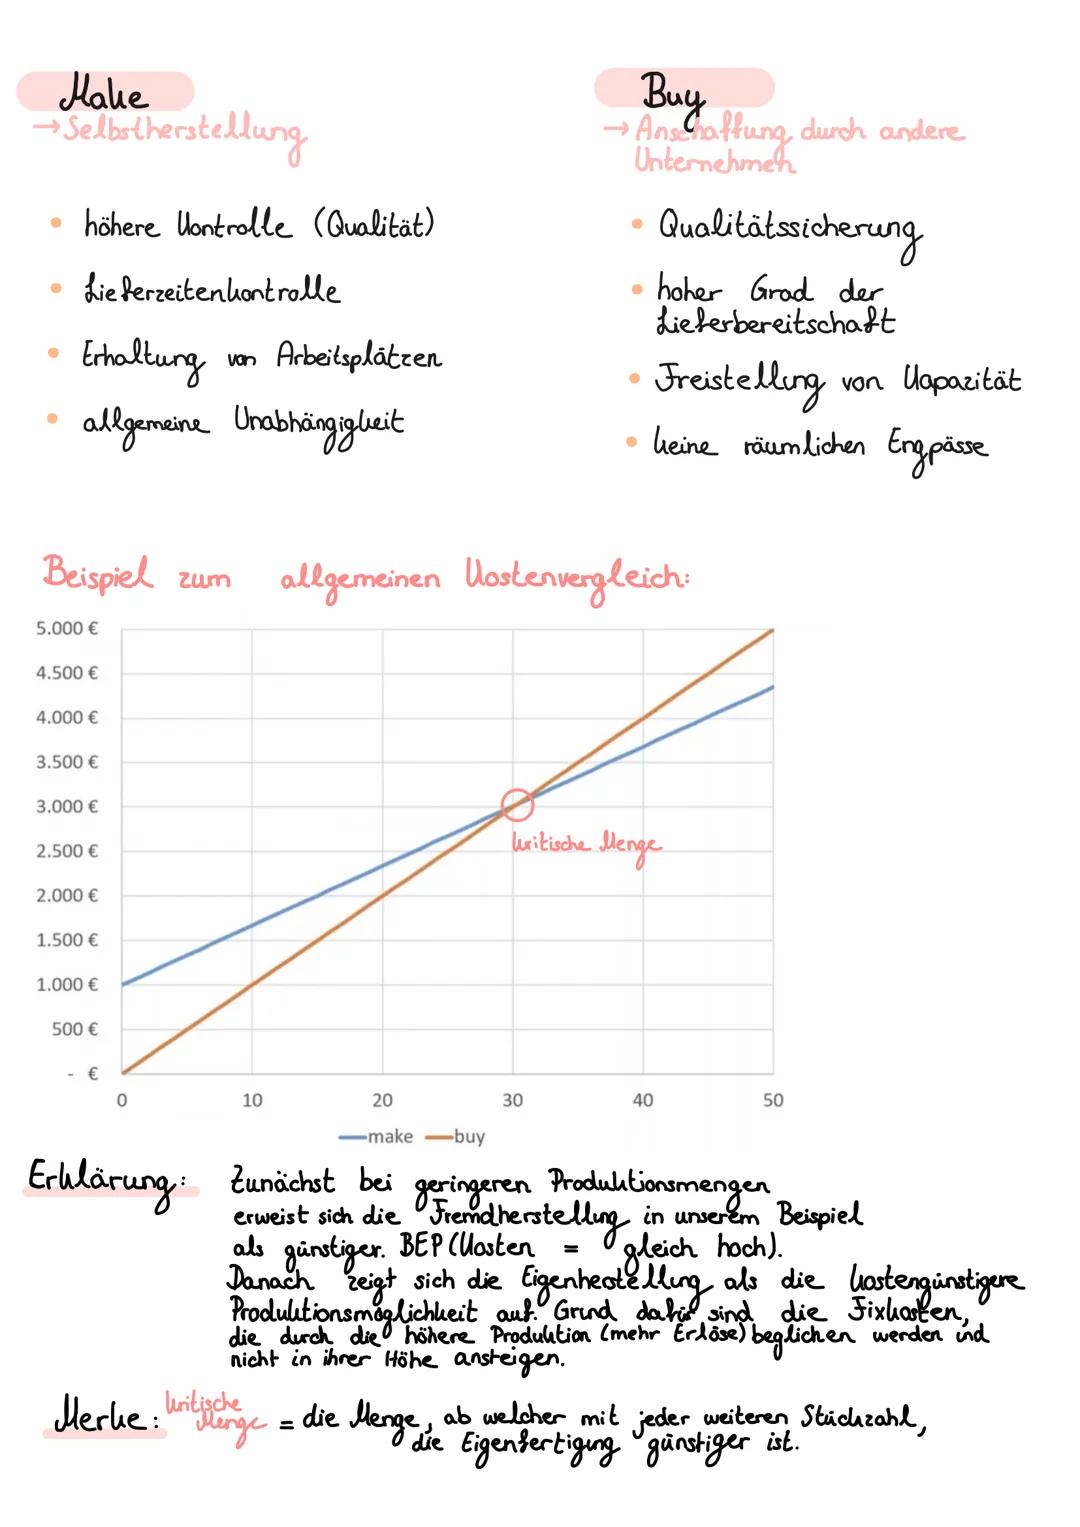 Make
→ Selbstherstellung
• höhere Kontrolle (Qualität)
• Lieferzeitenkontrolle
• Erhaltung von Arbeitsplätzen
• allgemeine Unabhängigkeit
Buy
→ Anschaffung durch andere
Unternehmen
• Qualitätssicherung
• hoher Grad der
Lieferbereitschaft
• Freistellung von Kapazität
• keine räumlichen Engpässe
Beispiel zum allgemeinen Kostenvergleich:
5.000 €
4.500 €
4.000 €
3.500 €
3.000 €
2.500 €
2.000 €
1.500 €
1.000 €
500 €
- €
kritische Menge
0 10 20 30 40 50
make buy
Erklärung: Zunächst bei geringeren Produktionsmengen
erweist sich die Fremdherstellung in unserem Beispiel
als günstiger. BEP (Kosten = gleich hoch).
Danach zeigt sich die Eigenherstellung als die kostengünstigere
Produktionsmöglichkeit auf. Grund dafür sind die Fixkosten,
die durch die höhere Produktion (mehr Erlöse) beglichen werden und
nicht in ihrer Höhe ansteigen.
Merke: kritische Menge = die Menge, ab welcher mit jeder weiteren Stückzahl,
die Eigenfertigung günstiger ist.